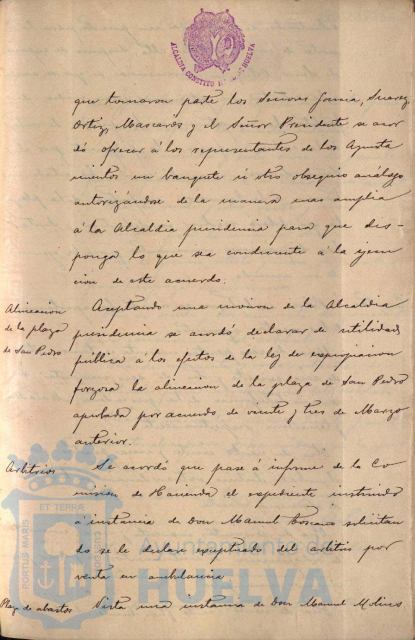 ALCALDIA CONSTITU HUELVA
que tomaron parte los Señores Garcia, Suarez
Ortiz, Mascarós y el Señor Presidente se acor
dó ofrecer á los representantes de los Ayunta
mientos un banquete ú otro obsequio análogo
autorizándose de la manera mas amplia
á la Alcaldia presidencia para que dis-
ponga lo que sea conducente á la ejecu
cion de este acuerdo.
Alineacion
de la plaza
de San Pedro
Aceptando una mocion de la Alcaldia
presidencia se acordó declarar de utilidad
pública á los efectos de la ley de expropiacion
forzosa la alineacion de la plaza de San Pedro
aprobada por acuerdo de veinte y tres de Marzo
anterior.
Arbitrios
Se acordó que pase á informe de la Co
mision de Hacienda el expediente instruido
á instancia de Don Manuel solicitan
do se le declare exceptuado del arbitrio por
venta en ambulancia
Plaza de abastos
Vista una instancia de Don Manuel Molins
PORTUS MARIS
ET TERRÆ
CUSTODIA
Ayuntamiento de
HUELVA